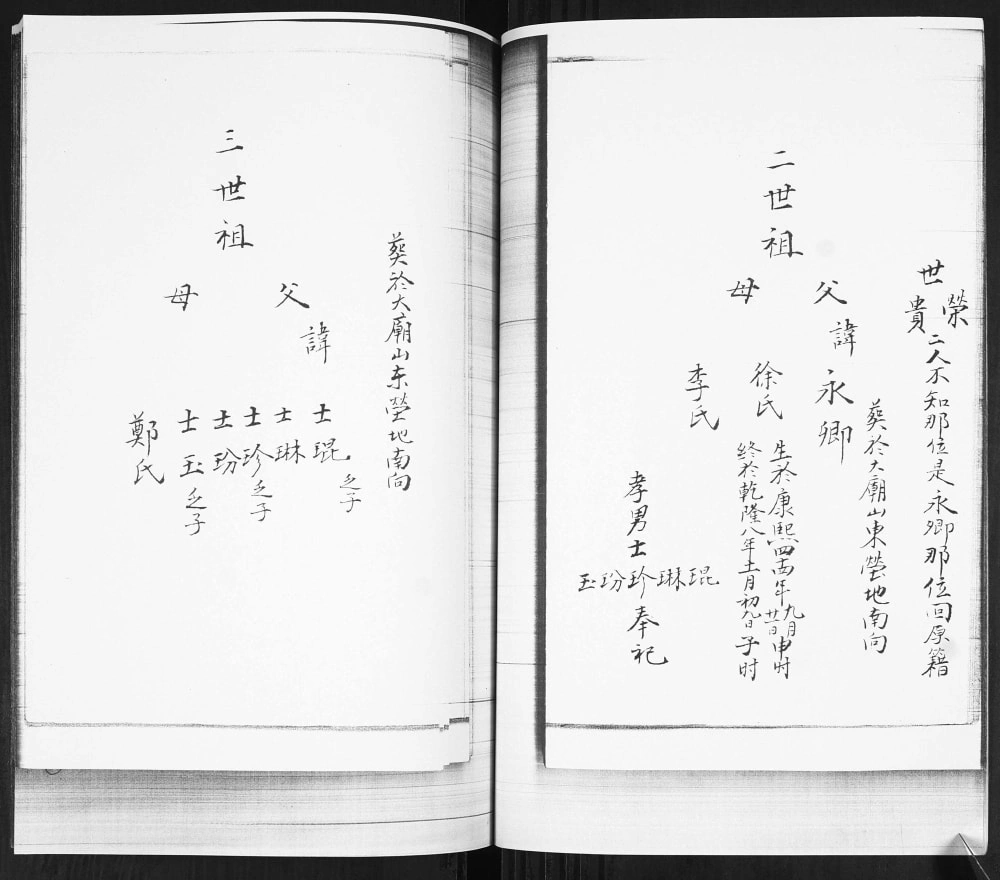 世榮貴二人不知那位是永卿那位回原籍
二世祖
父諱永卿
葬於大廟山東塋地南向
母
徐氏
生於康熙四十四年九月廿一日申时
終於乾隆八年十一月初九日子时
李氏
孝男士琨琳珍玢玉奉祀
葬於大廟山东塋地南向
三世祖
父諱
士琨之子
士琳
士珍之子
士玢
士玉之子
母
鄭氏